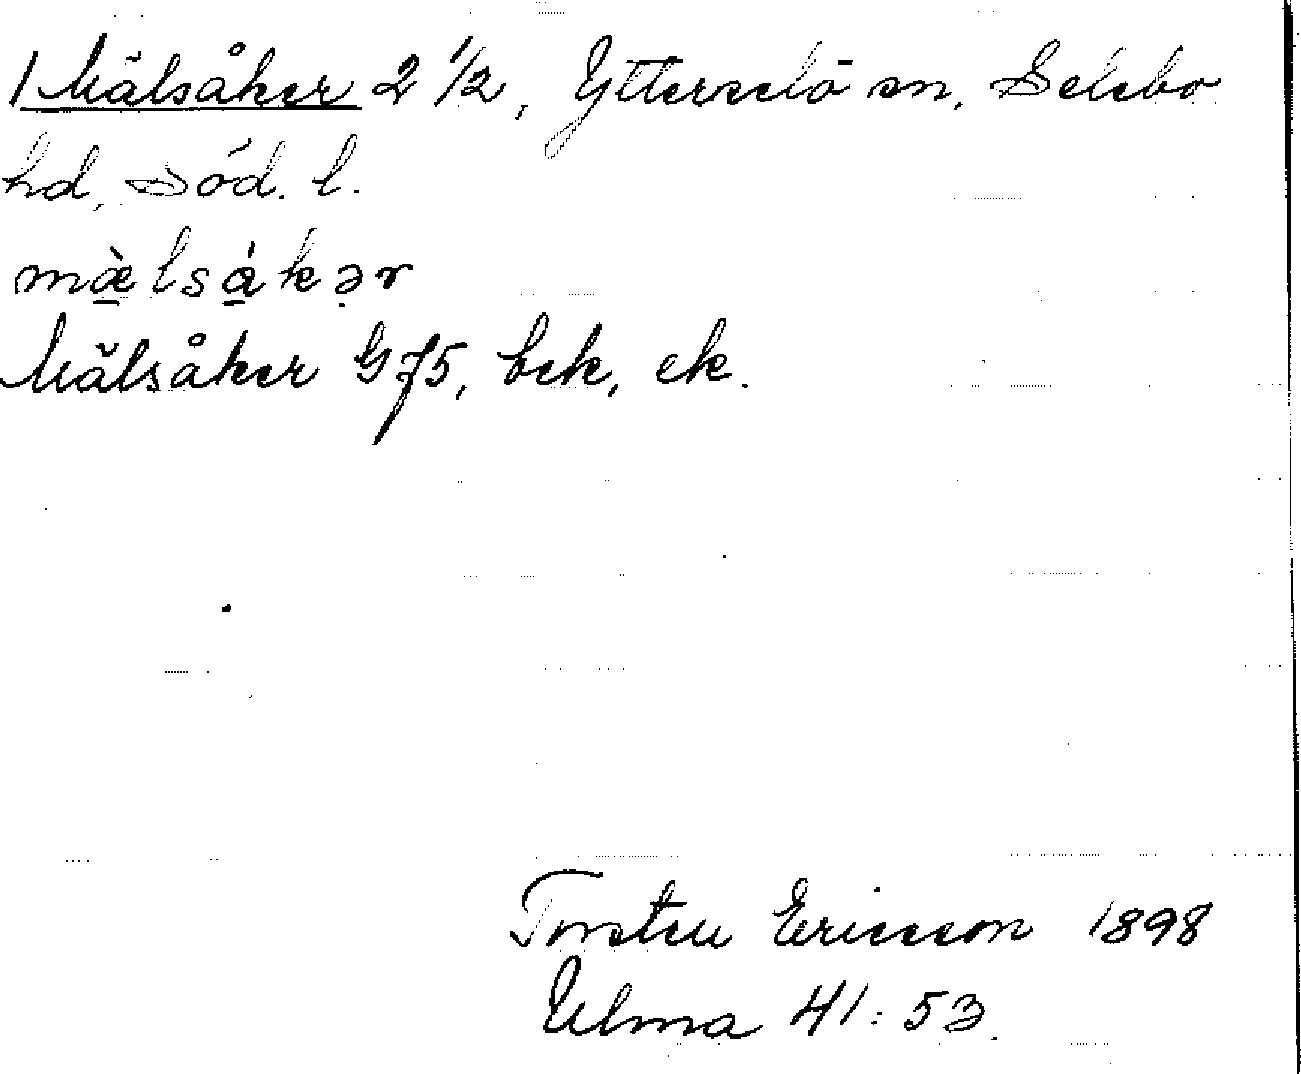 /Mälsåker 2 1/2, Ytterselö sn, Selebo
hd, Söd. l.
mæ̀lsåkər
Mälsåker G75, bek, ek.
Torsten Ericsson 1898
Ulma 41:53